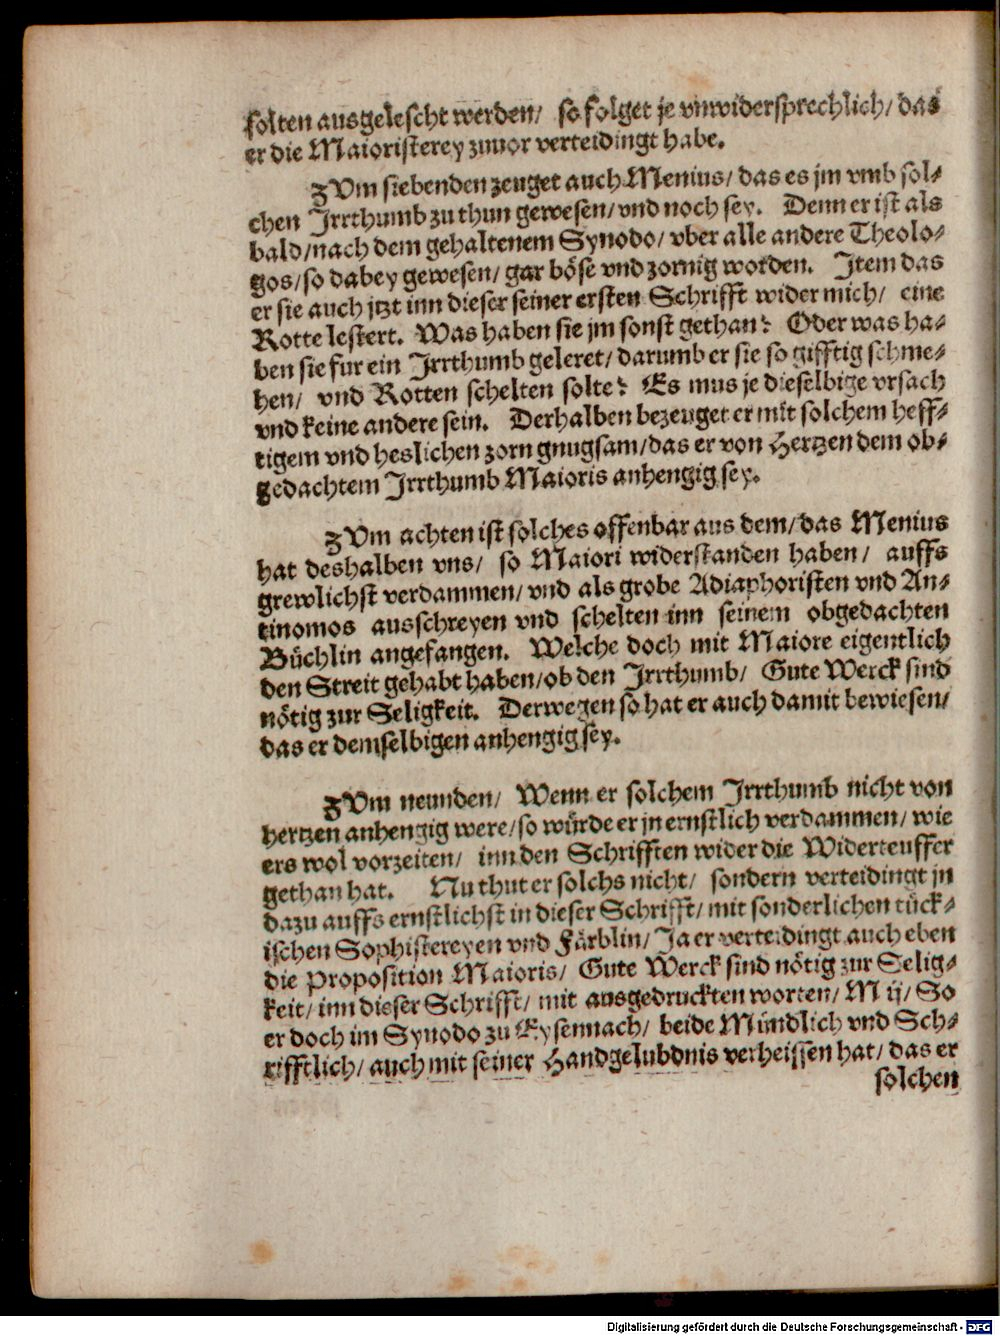 solten ausgelescht werden/ so folget je vnwidersprechlich/ das
er die Maioristerey zuuor verteidingt habe.
ZVm siebenden zeuget auch Menius/ das es jm vmb sol-
chen Irrthumb zu thun gewesen/ vnd noch sey. Denn er ist als
bald/ nach dem gehaltenem Synodo/ vber alle andere Theolo-
gos/ so dabey gewesen/ gar böse vnd zornig worden. Item das
er sie auch jtzt inn dieser seiner ersten Schrifft wider mich/ eine
Rotte lestert. Was haben sie jm sonst gethan? Oder was ha-
ben sie fur ein Irrthumb geleret/ darumb er sie so gifftig schme-
hen/ vnd Rotten schelten solte? Es mus je dieselbige vrsach
vnd keine andere sein. Derhalben bezeuget er mit solchem heff-
tigem vnd heslichen zorn gnugsam/ das er von Hertzen dem ob-
gedachtem Irrthumb Maioris anhengig sey.
ZVm achten ist solches offenbar aus dem/ das Menius
hat deshalben vns/ so Maiori widerstanden haben/ auffs
grewlichst verdammen/ vnd als grobe Adiaphoristen vnd An-
tinomos ausschreyen vnd schelten inn seinem obgedachten
Büchlin angefangen. Welche doch mit Maiore eigentlich
den Streit gehabt haben/ ob den Irrthumb/ Gute Werck sind
nötig zur Seligkeit. Derwegen so hat er auch damit bewiesen/
das er demselbigen anhengig sey.
ZVm neunden/ Wenn er solchem Irrthumb nicht von
hertzen anhengig were/ so würde er jn ernstlich verdammen/ wie
ers wol vorzeiten/ inn den Schrifften wider die Widerteuffer
gethan hat. Nu thut er solchs nicht/ sondern verteidingt jn
dazu auffs ernstlichst in dieser Schrifft/ mit sonderlichen tück-
ischen Sophistereyen vnd Färblin/ Ja er verteidingt auch eben
die Proposition Maioris/ Gute Werck sind nötig zur Selig-
keit/ inn dieser Schrifft/ mit ausgedruckten worten/ M ij/ So
er doch im Synodo zu Eysennach/ beide Mündlich vnd Sch-
rifftlich/ auch mit seiner Handgelubdnis verheissen hat/ das er
solchen
Digitalisierung gefördert durch die Deutsche Forschungsgemeinschaft - DFG